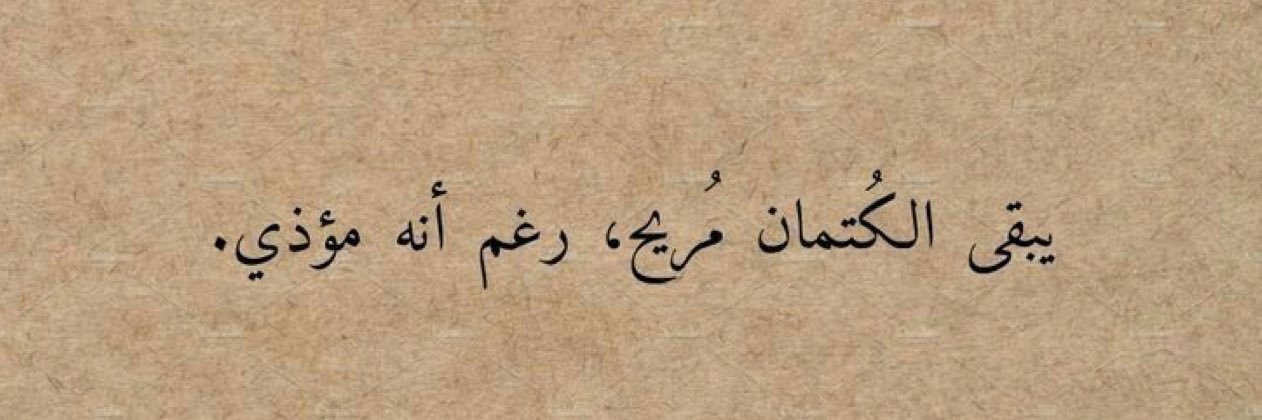 يبقى الكُتمان مُريح، رغم أنه مؤذي.